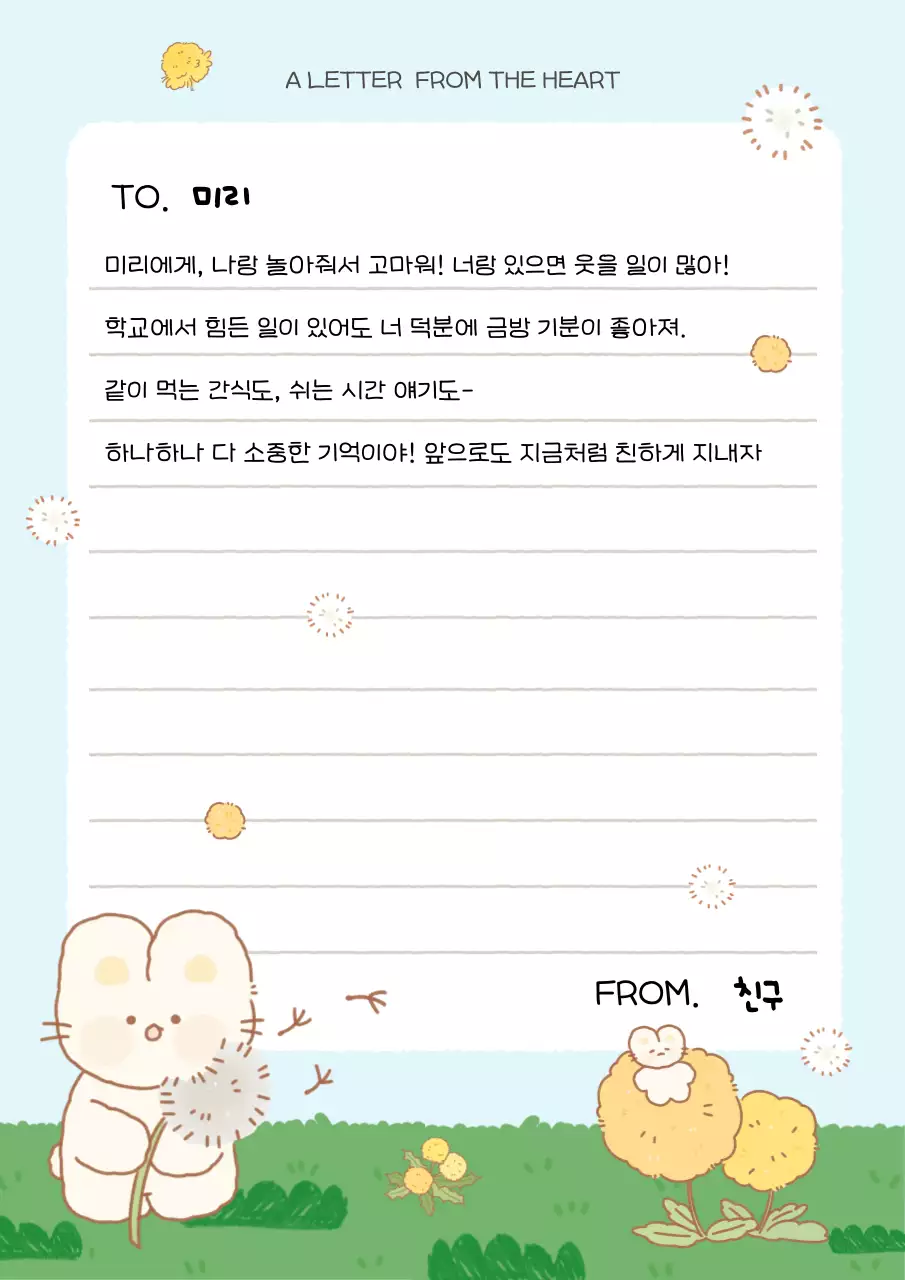 A LETTER FROM THE HEART
TO. 미리
미리에게, 나랑 놀아줘서 고마워! 너랑 있으면 웃을 일이 많아!
학교에서 힘든 일이 있어도 너 덕분에 금방 기분이 좋아져.
같이 먹는 간식도, 쉬는 시간 얘기도-
하나하나 다 소중한 기억이야! 앞으로도 지금처럼 친하게 지내자
FROM. 친구